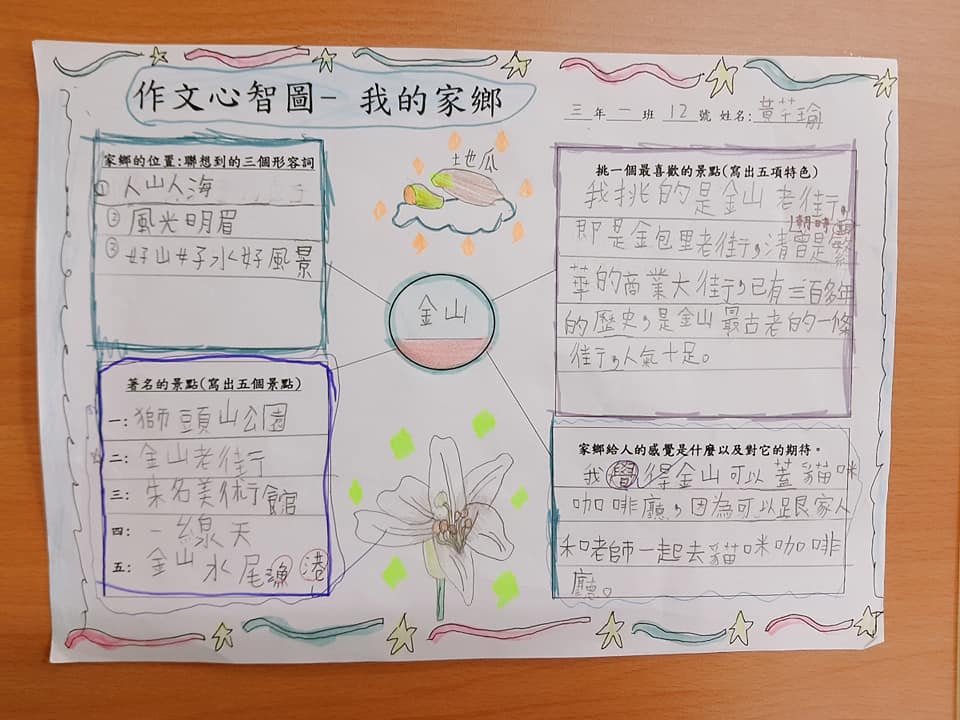 作文心智圖- 我的家鄉
三年一班 12號 姓名:黃芊瑜
土地瓜
家鄉的位置:聯想到的三個形容詞
① 人山人海
② 風光明眉
③ 好山好水好風景
金山
著名的景點(寫出五個景點)
一: 獅頭山公園
二: 金山老街
三: 朱名美術館
四: 一線天
五: 金山水尾漁港
挑一個最喜歡的景點(寫出五項特色)
我挑的是金山老街,
即是金包里老街,清朝時曾是繁
華的商業大街,已有三百多年
的歷史,是金山最古老的一條
街,人氣十足。
家鄉給人的感覺是什麼以及對它的期待。
我覺得金山可以蓋貓咪
咖啡廳,因為可以跟家人
和老師一起去貓咪咖啡
廳。